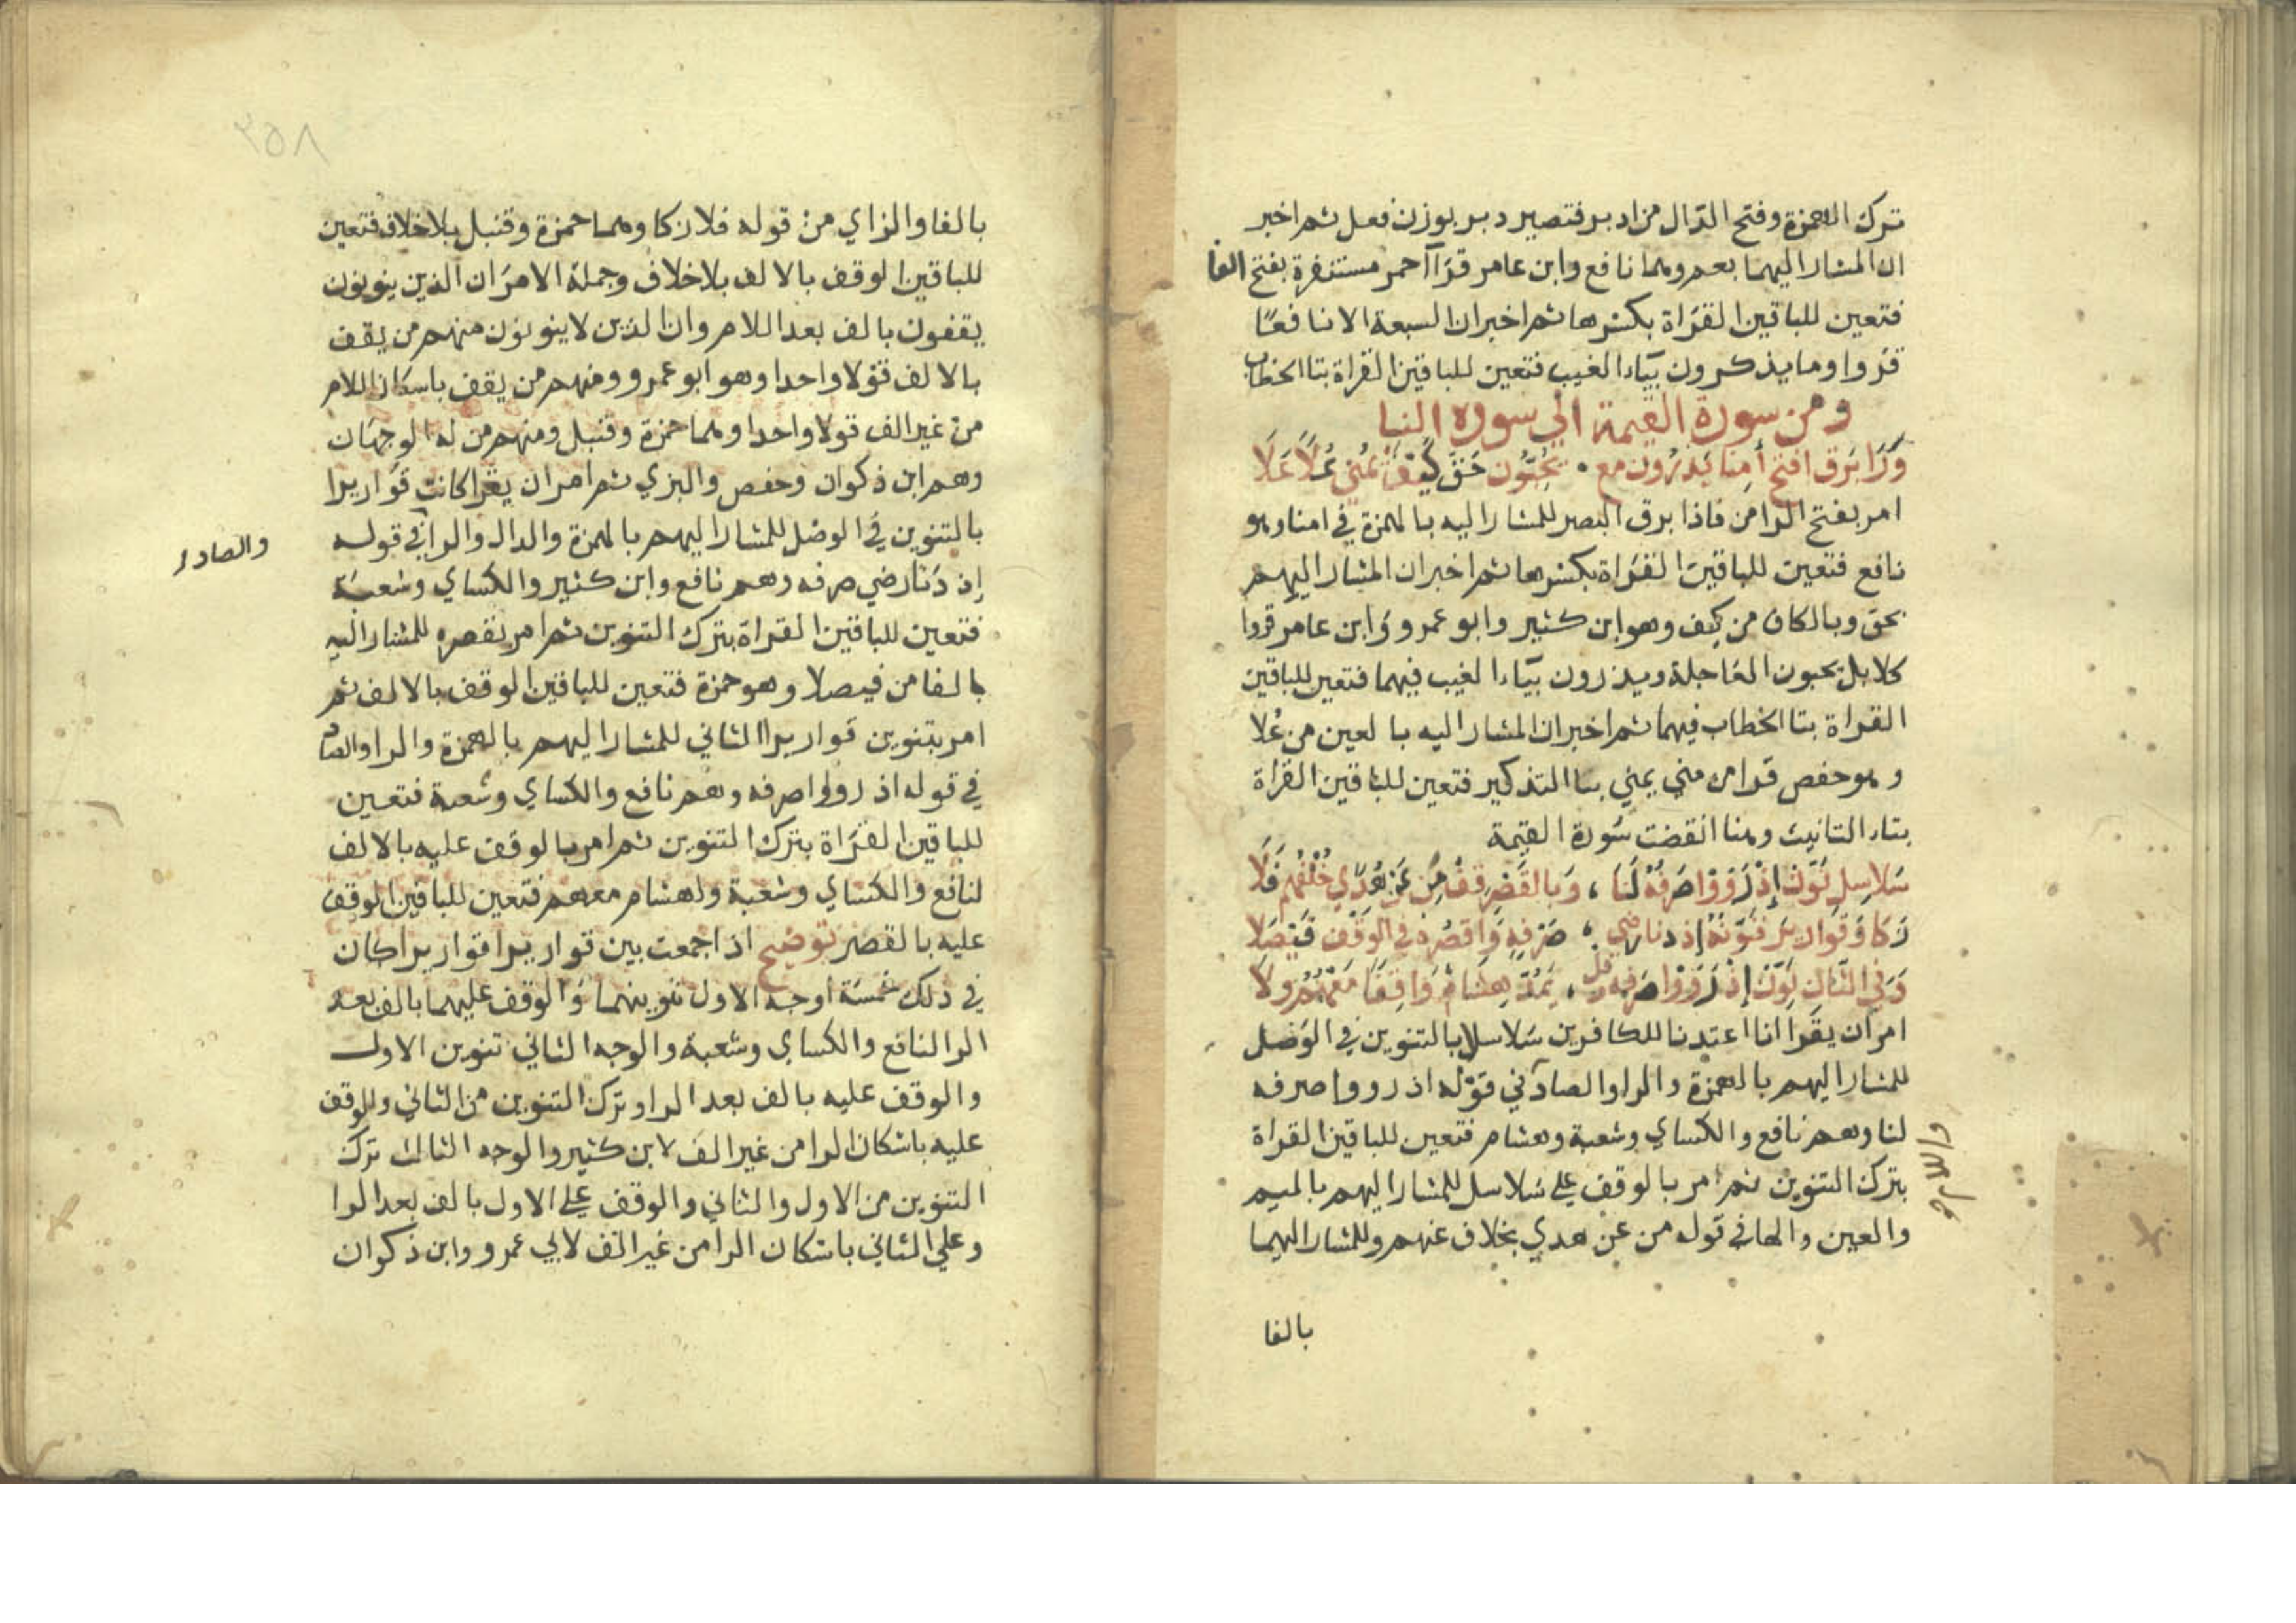 ترك الهمزة وفتح الدال من ادبر فتصير دبر بوزن فعل ثم اخبر
ان المشار اليهما بعم وهما نافع وابن عامر قرآ حمر مستنفرة بفتح الفا
فتعين للباقين القراة بكسرها ثم اخبر ان السبعة الا نافعا
قروا وما يذكرون بياء الغيب فتعين للباقين القراة بتا الخطاب
ومن سورة القيمة الي سورة النبا
وَرَا بَرَق افتح أمِنا يَذرُون مع • يُحبُّون حَقَّ كَيفَ يُمْنى عُلاً عَلَا
امر بفتح الرا من فاذا برق البصر للمشار اليه بالهمزة في امنا وهو
نافع فتعين للباقين القراة بكسرها ثم اخبر ان المشار اليهم
بحق وبالكاف من كيف وهو ابن كثير وابو عمرو وابن عامر قروا
كلا بل يحبون العاجلة ويذرون بياء الغيب فيهما فتعين للباقين
القراة بتا الخطاب فيهما ثم اخبر ان المشار اليه بالعين من عُلا
وهو حفص قرا من مني يمني بيا التذكير فتعين للباقين القراة
بتاء التانيث وهنا انقضت سورة القيمة
سَلاسِلَ نَوِّنْ إذْ رَوَوْا صَرفَهُ لَنَا ، وَبِالقَصْرِ قِفْ مِن عَنْ هُدًي خُلفُهُم فَلَا
زَكَا وَقَوَارِيرَ فَنَوِّنهُ إذ دنا رضي ، صَرْفِهِ وَاقصُرهُ في الوَقْفِ فَيْصَلَا
وَفي الثَّانِ نَوِّنْ إذْ رَوَوْا صَرفَهُ وقل ، يَمُدُّ هِشَامٌ وَاقِفًا مَعْهُمُ وِلَا
امر ان يقرا انا اعتدنا للكافرين سلاسلا بالتنوين في الوصل
للمشار اليهم بالهمزة والرا والصاد في قوله اذ رووا صرفه
لنا وهم نافع والكساي وشعبة وهشام فتعين للباقين القراة
واللام
بترك التنوين ثم امر بالوقف علي سلاسل للمشار اليهم بالميم
والعين والها في قوله من عن هدي بخلاف عنهم وللمشار اليهما
بالفا
٢٥٨
بالفا والزاي من قوله فلا زكا وهما حمزة وقنبل بلا خلاف فتعين
للباقين الوقف بالالف بلا خلاف وجملة الامر ان الذين ينونون
يقفون بالف بعد اللام وان الذين لا ينونون منهم من يقف
بالالف قولا واحدا وهو ابو عمرو ومنهم من يقف باسكان اللام
من غير الف قولا واحدا وهما حمزة وقنبل ومنهم من له الوجهان
وهم ابن ذكوان وحفص والبزي ثم امر ان يقرا كانت قواريرا
بالتنوين في الوصل للمشار اليهم بالهمزة والدال والرا في قوله
والصاد
إذ دَنا رضي صرفه وهم نافع وابن كثير والكساي وشعبة
فتعين للباقين القراة بترك التنوين ثم امر بقصره للمشار اليه
بالفا من فيصلا وهو حمزة فتعين للباقين الوقف بالالف ثم
امر بتنوين قواريرا الثاني للمشار اليهم بالهمزة والرا والصاد
في قوله اذ رووا صرفه وهم نافع والكساي وشعبة فتعين
للباقين القراة بترك التنوين ثم امر بالوقف عليه بالالف
لنافع والكساي وشعبة ولهشام معهم فتعين للباقين الوقف
عليه بالقصر توضيح اذا جمعت بين قواريرا قواريرا كان
في ذلك خمسة اوجه الاول تنوينهما والوقف عليهما بالف بعد
الرا لنافع والكساي وشعبة والوجه الثاني تنوين الاول
والوقف عليه بالف بعد الرا وترك التنوين من الثاني والوقف
عليه باسكان الرا من غير الف لابن كثير والوجه الثالث ترك
التنوين من الاول والثاني والوقف علي الاول بالف بعد الرا
وعلي الثاني باسكان الرا من غير الف لابي عمرو وابن ذكوان